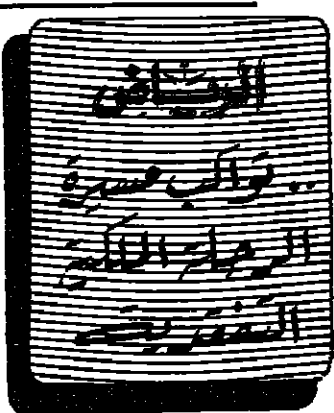 الرياض
.. تواكب مسيرة
الرحلة الملكية
التفقدية